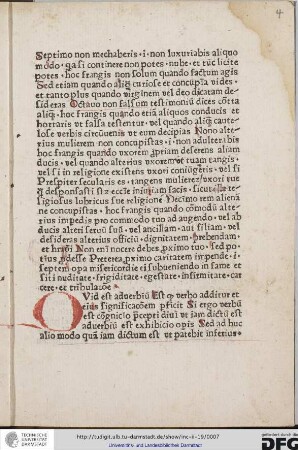 4
Septimo non mechaberis · i · non luxuriabis aliquo
modo · qͣ si continere non potes · nube · et tūc licite
potes · hoc frangis non solum quando factum agis
Sed etiam quando aliq̄ curiose et concupīa vides ·
et tanto plus quando virginem vel deo dicatam de-
sideras Octauo non falsum testimoniū dices cōtra
aliq̄ · hoc frangis quando etiā aliquos conducis et
hortaris vt falsa testentur · vel quando aliq̄ caute-
lose verbis circūuenis vt eum decipias Nono alte-
rius mulierem non concupistas · i · non adulterabis
hoc frangis quando vxorem ꝓpriam deserens aliam
ducis · vel quando alterius vxorem vt tuam tangis ·
vel si in religione existens vxori coniūgeris · vel si
Prespiter secularis es · tangens mulierē vxori tue
desponsasti
religiosus lubricus sue religione Decimo rem alienā
ne concupistas · hoc frangis quando cōmodū alte-
rius impedis pro commodo tuo ad augendo · vel ab
ducis alteri seruū suū · vel ancillam · aut filiam · vel
desideras alterius officiū · dignitatem
et Non nocere debes ꝓximo tuo · sed po-
tius Preterea ꝓximo caritatem impende · i ·
septem opa misericordie ei subueniendo in fame et
siti nuditate · frigiditate · egestate · infirmitate · car
cere · et tribulacōe
QVid est aduerbiū Est ꝗ verbo additur et
eius significacōem ꝑficit Si ergo verbū
est cognicio ꝑcepti diui vt iam dictū est
aduerbiū est exhibicio opis Sed ad huc
alio modo quā iam dictum est vt patebit inferius ·
TECHNISCHE
UNIVERSITÄT
DARMSTADT
http://tudigit.ulb.tu-darmstadt.de/show/inc-ii-19/0007
Universitäts- und Landesbibliothek Darmstadt
gefördert durch die
DFG